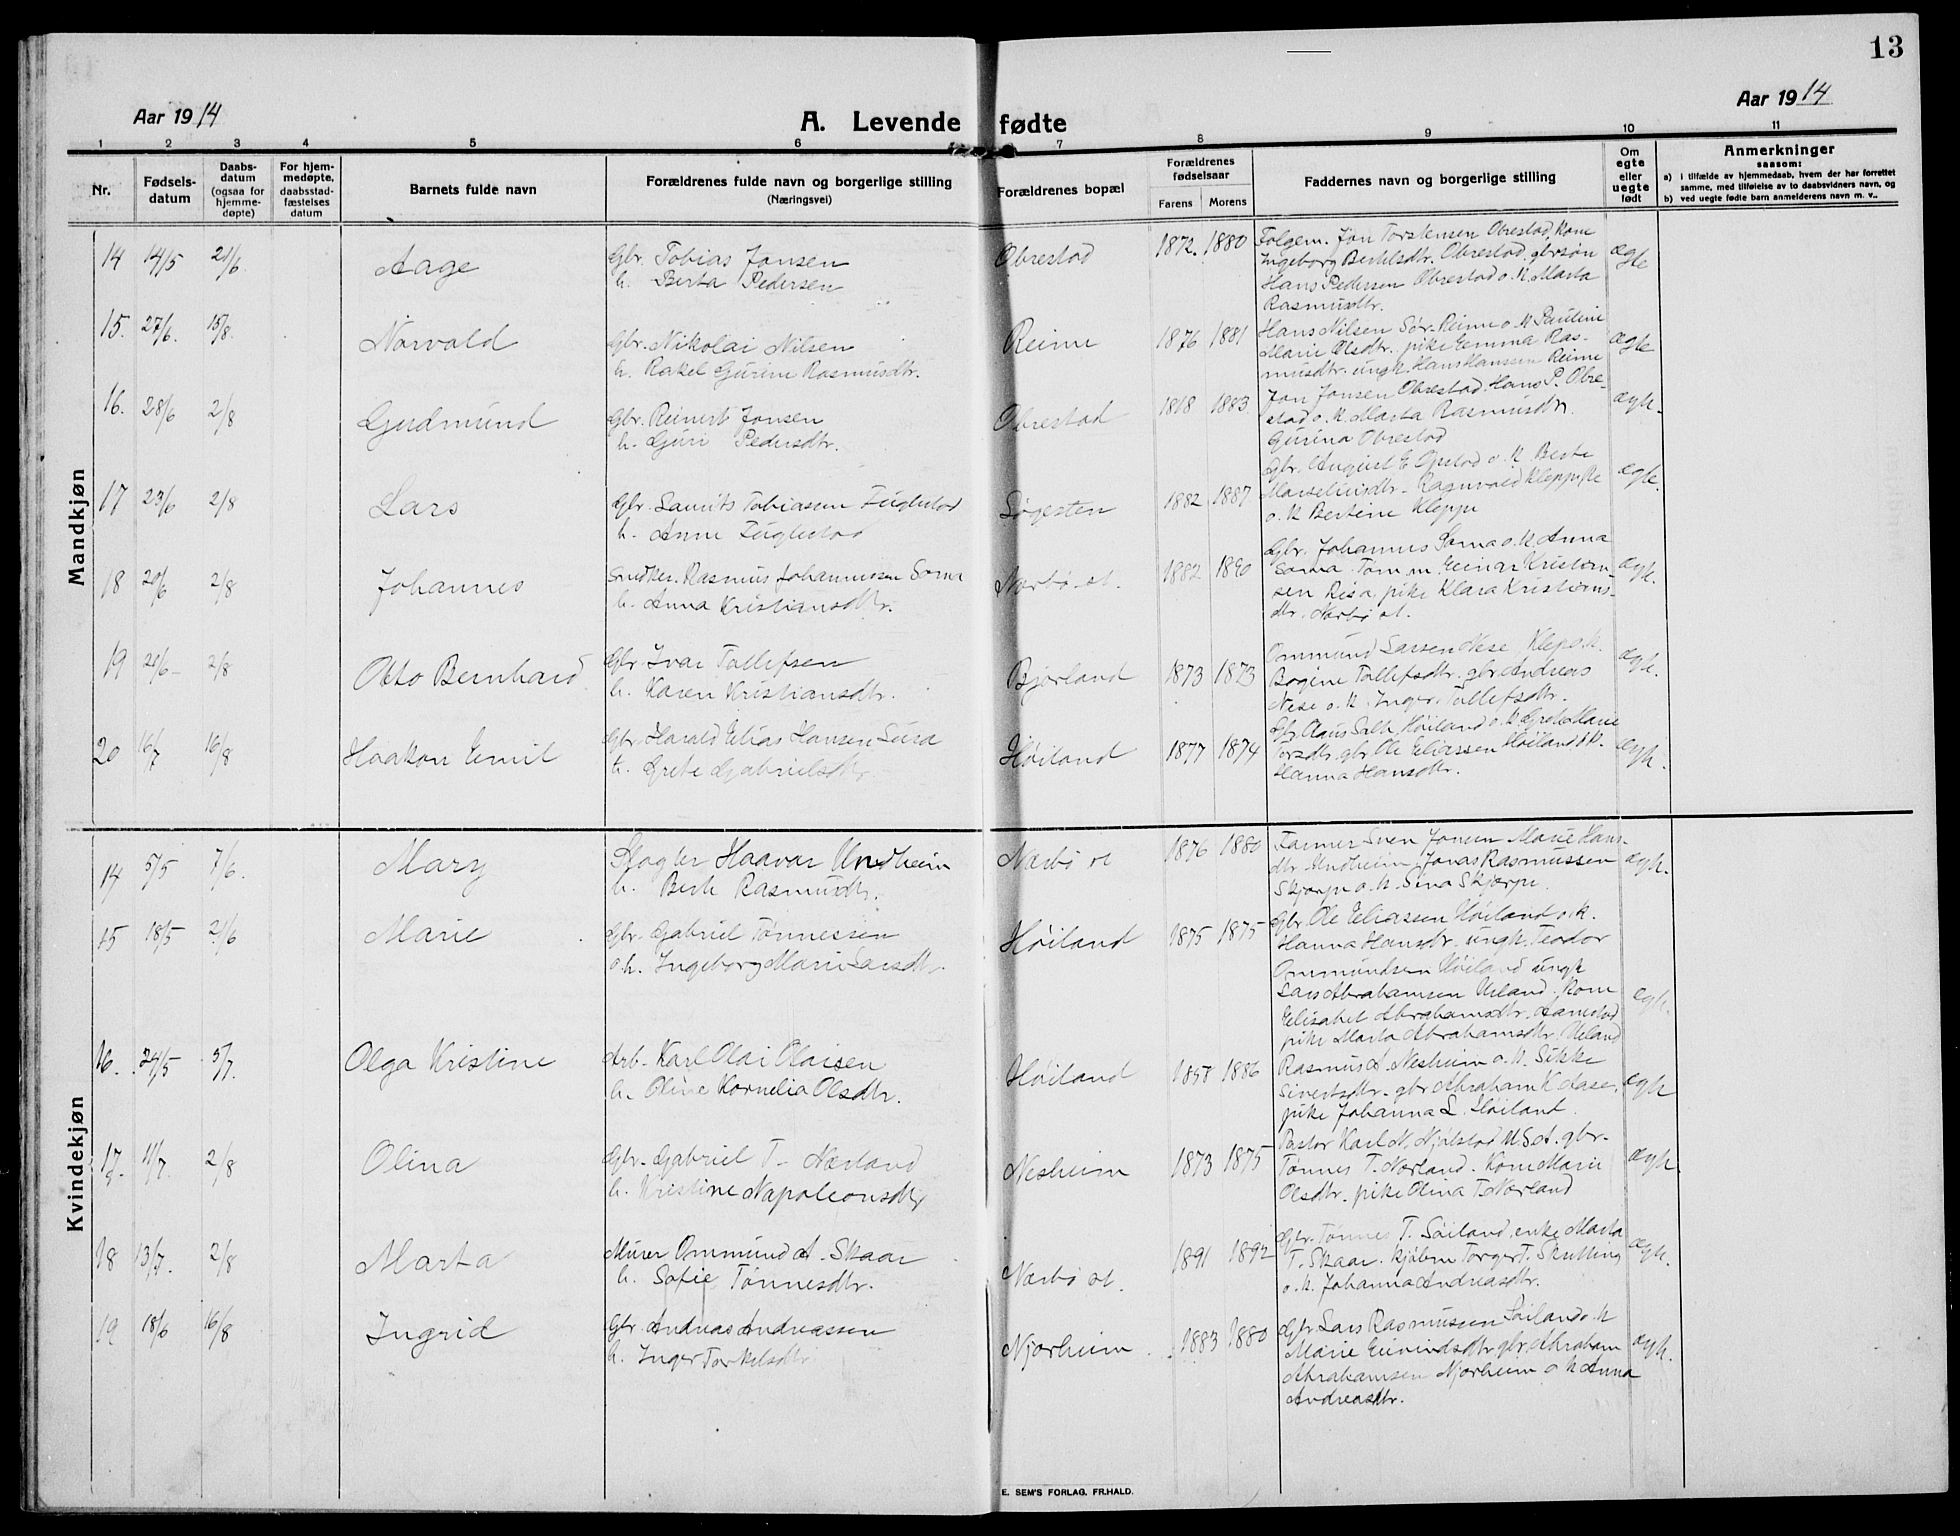 13
Aar 1914
Aar 1914
A. Levende fødte
1 2 3 4 5 6 7 8 9 10 11
Nr.
Fødsels-
datum
Daabs-
datum
(ogsaa for
hjemme-
døpte)
For hjem-
medøpte,
daabsstad-
fæstelses
datum
Barnets fulde navn
Forældrenes fulde navn og borgerlige stilling
(Næringsvei)
Forældrenes bopæl
Forældrenes
fødselsaar
Farens Morens
Faddernes navn og borgerlige stilling
Om
egte
eller
uegte
født
Anmerkninger
saasom:
a) i tilfælde av hjemmedaab, hvem der har forrettet
samme, med tilføielse av to daabsvidners navn, og
b) ved uegte fødte barn anmelderens navn m. v..
Mandkjøn
14 14/5 21/6 Aage
Gbr. Tobias Jonsen
h. Berta Pedersen
Obrestad 1872. 1880
Folgem. Jon Torstensen Obrestad, kone
Ingeborg Bertelsdtr. Obrestad, gbrsøn
Hans Pedersen Obrestad o. k. Marta
Rasmusdtr.
ægte
15. 27/6. 15/8. Norvald
Gbr. Nikolai Nilsen
h. Rakel Gurine Rasmusdtr.
Reime 1876 1881
Hans Nilsen Sør-Reime o. k. Pauline
Marie Olsdtr. pike Emma Ras-
musdtr. ungk. Hans Hansen Reime
ægte
16. 28/6 2/8 Gudmund
Gbr. Reinert Jonsen
h. Guri Pedersdtr.
Obrestad 1883
Jon Jonsen Obrestad. Hans P. Obre-
stad o. k. Marta Rasmusdtr.
Gurina Obrestad
ægte.
17 23/6 2/8 Lars
Gbr. Laurits Tobiassen Fuglestad
h. Anne Fuglestad
Søgesten 1882 1887
Gbr. August E Opstad o. k. Berte
Marseliusdtr. Ragnvald Kleppe
o. k. Bertine Kleppe
ægte.
18 20/6 2/8 Johannes
Snedker. Rasmus Johannessen Soma
h. Anna Kristiansdtr.
Nærbø st. 1882 1890
Gbr. Johannes Soma o. k. Anna
Soma. Tøm.m. Einar Kristian-
sen Risa, pike Klara Kristians-
dtr. Nærbø st.
ægte.
19 20/6 2/8 Otto Bernhard
Gbr. Ivar Tollefsen
h. Karen Kristiansdtr.
Bjorland 1873 1873
Ommund Larsen Nese, Klep o. k.
Bogine Tollefsdtr. gbr Andreas
Nese o. k. Inger Tollefsdtr.
ægte.
20 16/7 16/8 Haakon Emil
Gbr. Harald Elias Hansen
h. Grete Gabrielsdtr.
Høiland 1877 1874
Gbr. Claus Salte, Høiland o. k. Grete Marie
gbr. Ole Eliassen Høiland o k.
Hanna Hansdtr.
ægte.
Kvindekjøn
14 5/5 7/6. Mary
Slagter Haavar Undheim
h. Berte Rasmusdtr.
Nærbø st 1876 1880
Farmer Sven Jonsen Marie Hans-
dtr. Undheim. Jonas Rasmussen
Skjærpe o. k. Sina Skjærpe.
ægte.
15 18/5 21/6 Marie
Gbr. Gabriel Tønnessen
o. h. Ingeborg Marie Larsdtr.
Høiland 1875 1875
Gbr. Ole Eliassen Høiland o. k.
Hanna Hansdtr. ungk. Teodor
Ommundsen Høiland ungk
Lars Abrahamsen Ueland. Kone
Elisabet Abrahamsdtr. Aanestad
pike Marta Abrahamsdtr. Ueland
ægte.
16. 24/5 5/7. Olga Kristine
Arb. Karl Olai Olaisen
h. Oline Kornelia Olsdtr.
Høiland 1886
Rasmus A. Nesheim o. k. Sikke
Sivertsdtr. gbr Abraham K. Aase,
pike Johanna L. Høiland.
ægte
17 11/7. 2/8 Olina
Gbr. Gabriel T. Nærland
h. Kristine Napoleonsdtr
Nesheim 1873 1875
Pastor Karl N. Njølstad U.S.A. gbr.
Tønnes T. Nærland. Kone Marie
Olsdtr. pike Olina T. Nærland
ægte
18 13/7. 2/8 Marta
Murer Ommund A. Skaar
h. Sofie Tønnesdtr.
Nærbø st. 1891 1892
Gbr. Tønnes T. Søiland, enke Marta
T. Skaar. kjøbm Torger T. Skretting
o. k. Johanna Andreasdtr.
ægte.
19 18/6 16/8 Ingrid
Gbr. Andreas Andreassen
h. Inger Torkelsdtr
Njorheim. 1883 1880
Gbr. Lars Rasmussen Søiland o. k
Marie Eivindsdtr gbr. Abraham
Abrahamsen Njorheim o k Anna
Andreasdtr.
ægte.
E. SEM'S FORLAG. FR.HALD.